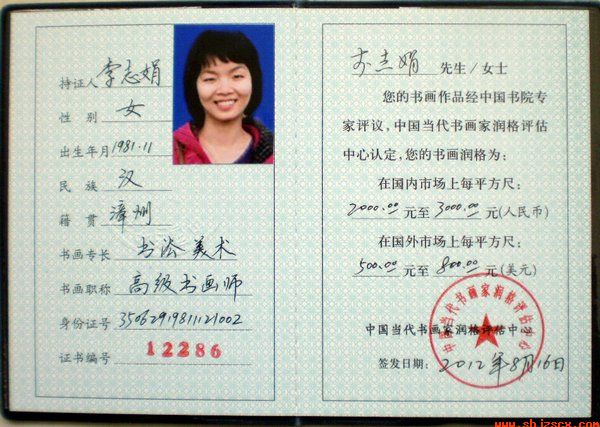 持证人 李志娟
性 别 女
出生年月 1981.11
民 族 汉
籍 贯 漳州
书画专长 书法 美术
书画职称 高级书画师
身份证号 35062919811121002
证书编号 12286
李志娟 先生/女士
您的书画作品经中国书院专
家评议,中国当代书画家润格评估
中心认定,您的书画润格为:
在国内市场上每平方尺:
2000.00 元至 3000.00 元(人民币)
在国外市场上每平方尺:
500.00 元至 800.00 元(美元)
中国当代书画家润格评估中心
中国当代书画家润格评估中心
签发日期: 2012年8月16日
www.shjzscx.com